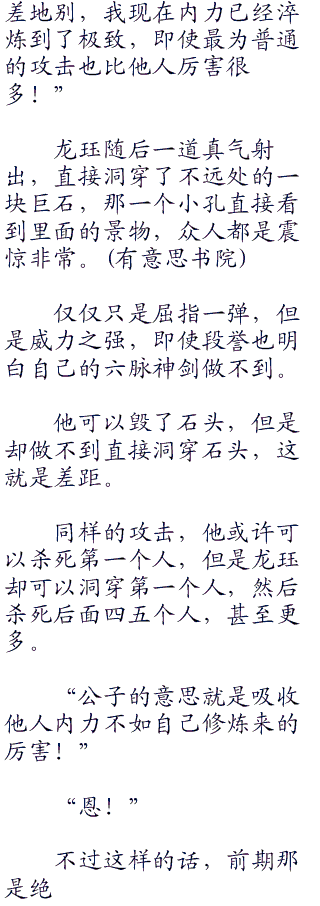 差地别，我现在内力已经淬
炼到了极致，即使最为普通
的攻击也比他人厉害很
多！”
龙珏随后一道真气射
出，直接洞穿了不远处的一
块巨石，那一个小孔直接看
到里面的景物，众人都是震
惊非常。(有意思书院)
仅仅只是屈指一弹，但
是威力之强，即使段誉也明
白自己的六脉神剑做不到。
他可以毁了石头，但是
却做不到直接洞穿石头，这
就是差距。
同样的攻击，他或许可
以杀死第一个人，但是龙珏
却可以洞穿第一个人，然后
杀死后面四五个人，甚至更
多。
“公子的意思就是吸收
他人内力不如自己修炼来的
厉害！”
“恩！”
不过这样的话，前期那
是绝